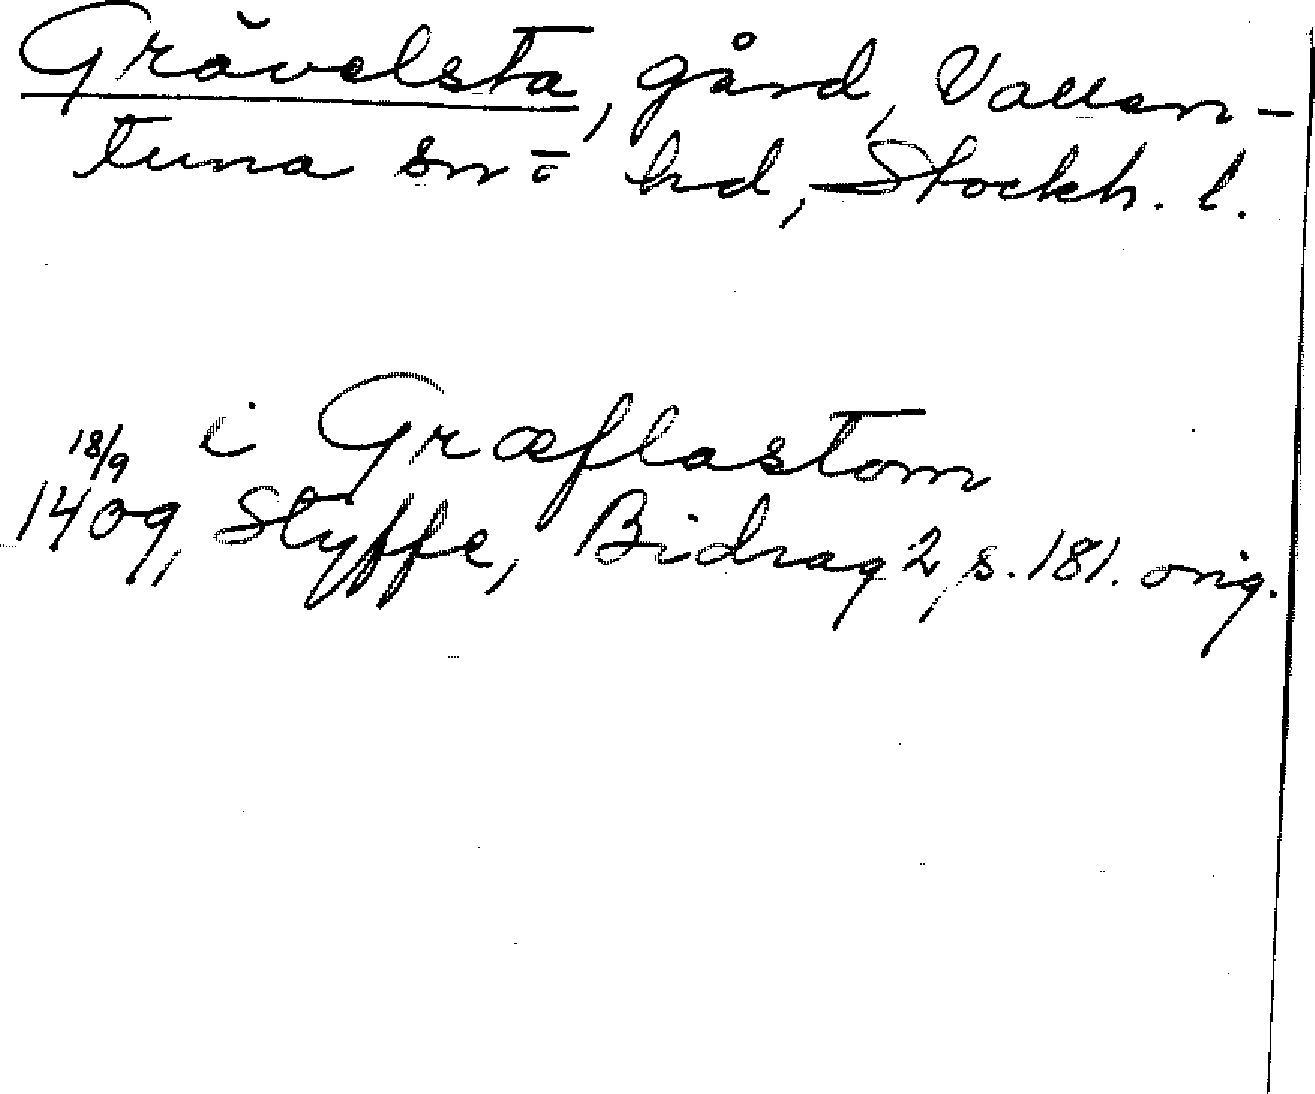 Grävelsta, gård, Vallen-
tuna sn o hd, Stockh. l.
i Græflastom
18/9 1409, Styffe, Bidrag 2, s. 181. orig.